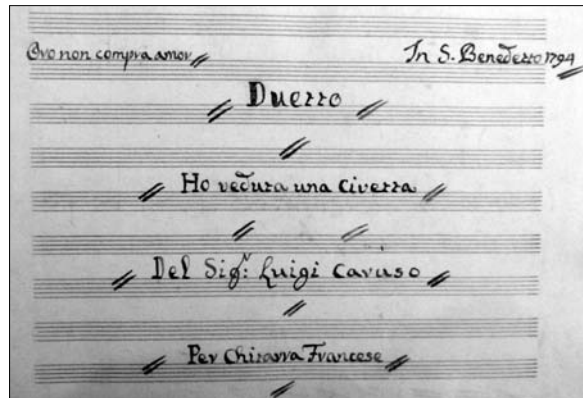 Oro non compra amor
In S. Benedetto 1794
Duetto
Ho veduta una Civetta
Del Sig.r: Luigi Caruso
Per Chitarra Francese